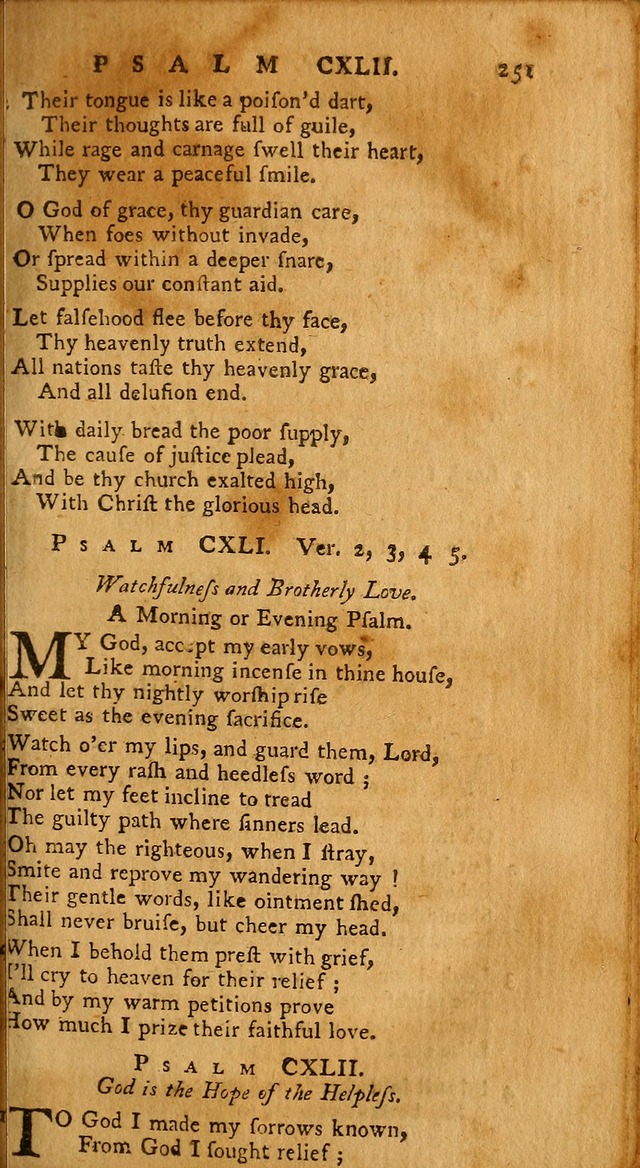 PSALM CXLII. 251
Their tongue is like a poiſon'd dart,
Their thoughts are full of guile,
While rage and carnage ſwell their heart,
They wear a peaceful ſmile.
O God of grace, thy guardian care,
When foes without invade,
Or ſpread within a deeper ſnare,
Supplies our conſtant aid.
Let falſehood flee before thy face,
Thy heavenly truth extend,
All nations taſte thy heavenly grace,
And all deluſion end.
With daily bread the poor ſupply,
The cauſe of juſtice plead,
And be thy church exalted high,
With Chriſt the glorious head.
PSALM CXLI. Ver. 2, 3, 4 5.
Watchfulneſs and Brotherly Love.
A Morning or Evening Pſalm.
MY God, accept my early vows,
Like morning incenſe in thine houſe,
And let thy nightly worſhip riſe
Sweet as the evening ſacrifice.
Watch o'er my lips, and guard them, Lord,
From every raſh and heedleſs word ;
Nor let my feet incline to tread
The guilty path where ſinners lead.
Oh may the righteous, when I ſtray,
Smite and reprove my wandering way !
Their gentle words, like ointment ſhed,
Shall never bruiſe, but cheer my head.
When I behold them preſt with grief,
I'll cry to heaven for their relief ;
And by my warm petitions prove
How much I prize their faithful love.
PSALM CXLII.
God is the Hope of the Helpleſs.
TO God I made my ſorrows known,
From God I ſought relief ;